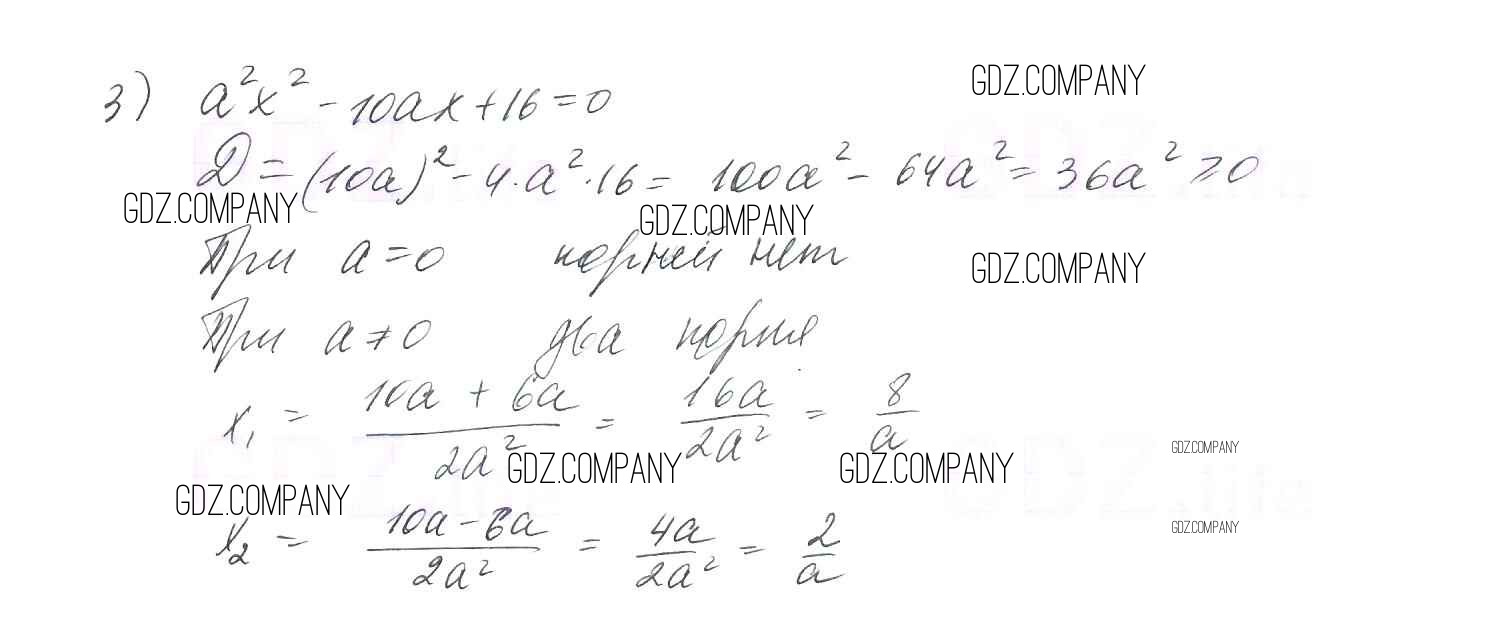 3) a²x² - 10ax + 16 = 0
GDZ.COMPANY
D = (10a)² - 4·a²·16 = 100a² - 64a² = 36a² ⩾ 0
GDZ.COMPANY
GDZ.COMPANY
При a = 0 корней нет
GDZ.COMPANY
При a ≠ 0 два корня
x₁ = (10a + 6a)/(2a²) = 16a/(2a²) = 8/a
GDZ.COMPANY
GDZ.COMPANY
GDZ.COMPANY
GDZ.COMPANY
x₂ = (10a - 6a)/(2a²) = 4a/(2a²) = 2/a
GDZ.COMPANY